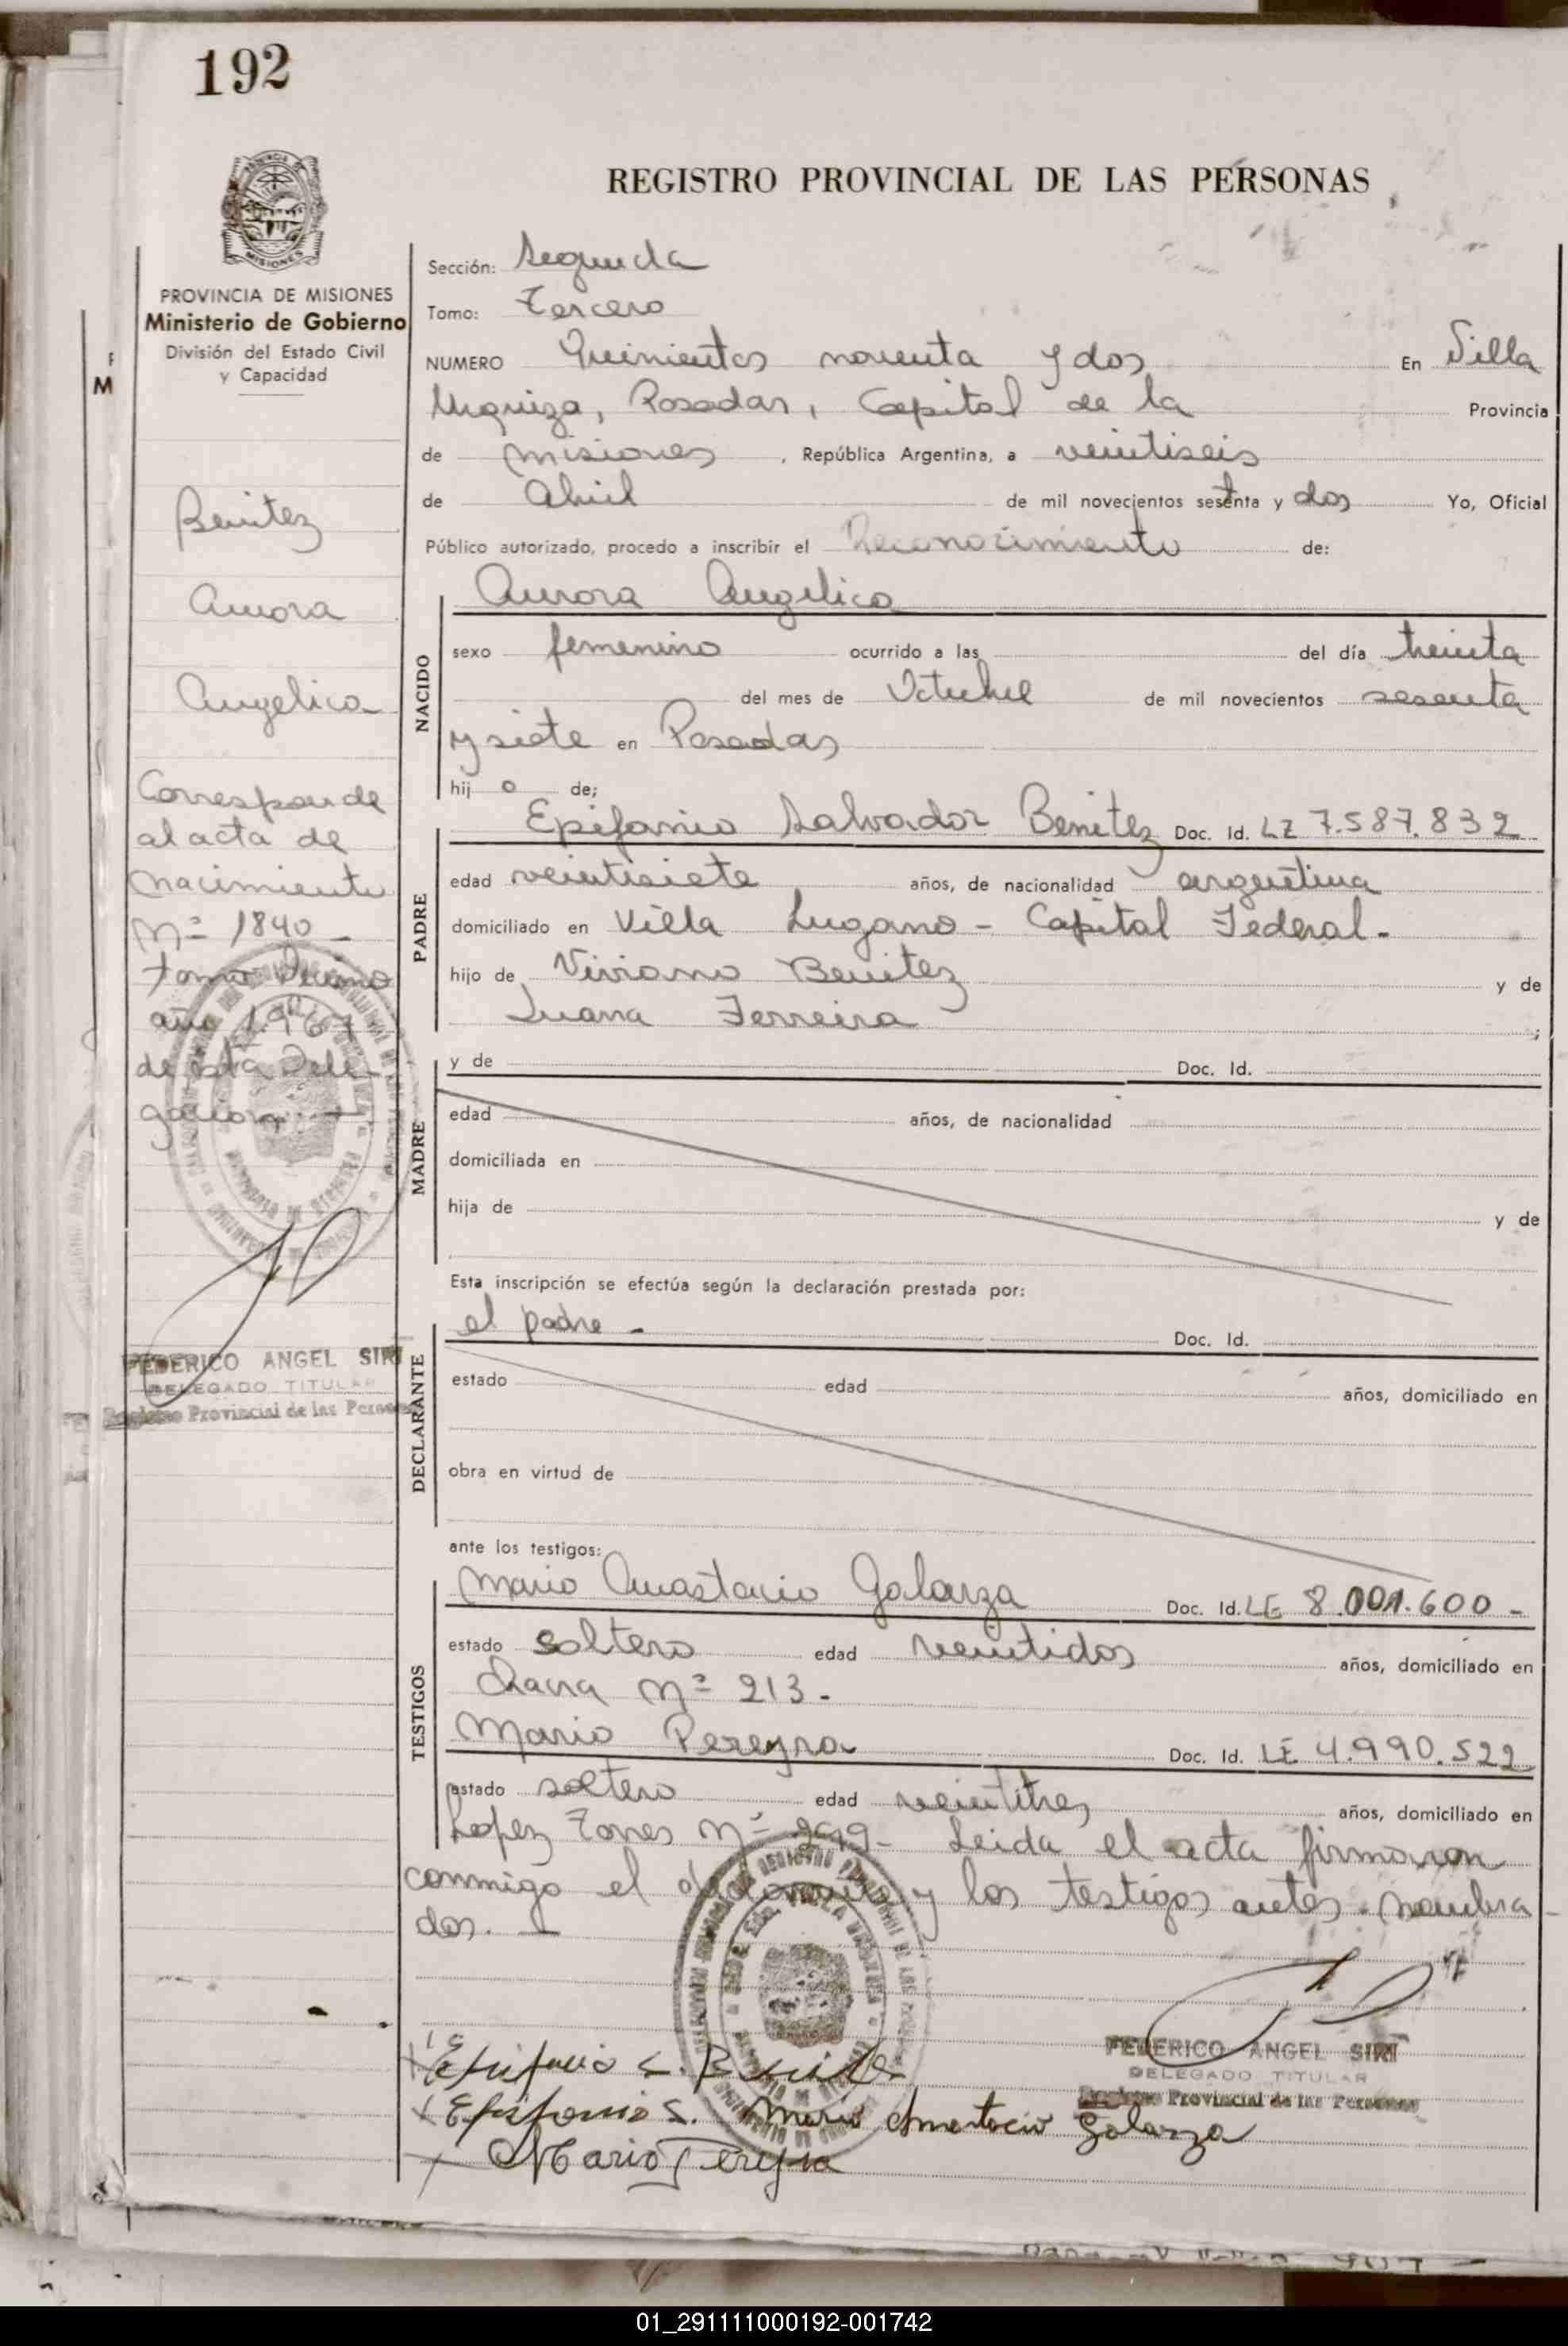 192
REGISTRO PROVINCIAL DE LAS PERSONAS
MISIONES
PROVINCIA DE MISIONES
Ministerio de Gobierno
División del Estado Civil
y Capacidad
Benitez
Aurora
Angelica
Corresponde
al acta de
nacimiento
Nº 1840 -
tomo Decimo
año 1.967
de esta Dele-
gacion
FEDERICO ANGEL SIRI
DELEGADO TITULAR
Registro Provincial de las Personas
Sección: Segunda
Tomo: Tercero
NUMERO Quinientos noventa y dos En Villa
Urquiza, Posadas, Capital de la Provincia
de Misiones , República Argentina, a veintiseis
de Abril de mil novecientos setenta y dos Yo, Oficial
Público autorizado, procedo a inscribir el Reconocimiento de:
NACIDO
Aurora Angelica
sexo femenino ocurrido a las del día treinta
del mes de Octubre de mil novecientos sesenta
y siete en Posadas
hij o de;
PADRE
Epifanio Salvador Benitez Doc. Id. LE 7.587.832
edad veintisiete años, de nacionalidad argentina
domiciliado en Villa Lugano - Capital Federal.
hijo de Viviano Benitez y de
Juana Ferreira ;
MADRE
y de Doc. Id.
edad años, de nacionalidad
domiciliada en
hija de y de
Esta inscripción se efectúa según la declaración prestada por:
DECLARANTE
el padre - Doc. Id.
estado edad años, domiciliado en
obra en virtud de
ante los testigos:
TESTIGOS
Mario Anastacio Galarza Doc. Id. LE 8.001.600 -
estado soltero edad veintidos años, domiciliado en
Chacra Nº 213 -
Mario Pereyra Doc. Id. LE 4.990.522
estado soltero edad veintitres años, domiciliado en
Lopez Torres Nº 2619 - Leida el acta firmaron
conmigo el declarante y los testigos antes nombra-
dos. -
FEDERICO ANGEL SIRI
DELEGADO TITULAR
Registro Provincial de las Personas
Epifanio S. Benitez
Epifanio S. Mario Anastacio Galarza
Mario Pereyra
01_291111000192-001742